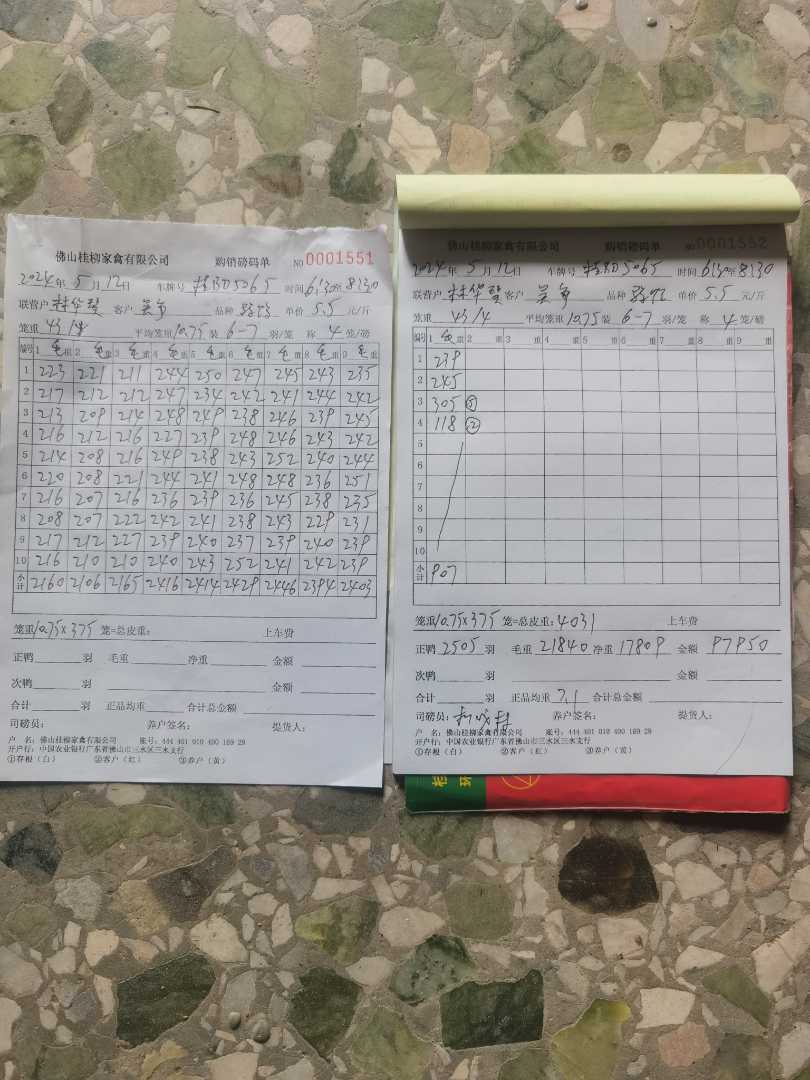 佛山桂柳家禽有限公司 购销磅码单 NO 0001551
2024年 5月12日 车牌号 5065 时间 6:30至8:30
联营户 林华 客户 品种 单价 5.5 元/斤
笼重 43/4 平均笼重10.75 装 6-7 羽/笼 称 4 笼/磅
编号 1 毛重 2 毛重 3 毛重 4 毛重 5 毛重 6 毛重 7 毛重 8 毛重 9 毛重
1 223 221 211 244 250 247 245 243 235
2 217 212 212 247 234 242 241 244 242
3 213 209 214 248 249 238 246 239 245
4 216 212 216 227 239 248 246 243 242
5 214 208 216 249 238 243 252 240 244
6 220 208 221 244 241 248 248 236 251
7 216 207 216 236 239 236 245 238 235
8 208 207 222 242 241 238 243 229 231
9 217 212 227 239 240 237 239 240 239
10 216 210 210 240 243 252 241 242 239
小计 2160 2106 2165 2416 2414 2429 2446 2394 2403
笼重10.75×375 笼=总皮重: 上车费
正鸭 羽 毛重 净重 金额
次鸭 羽 金额
合计 羽 正品均重 合计总金额
司磅员: 养户签名: 提货人:
户 名: 佛山桂柳家禽有限公司 账号: 444 461 010 400 189 29
开户行: 中国农业银行广东省佛山市三水区三水支行
①存根(白) ②客户(红) ③养户(黄)
佛山桂柳家禽有限公司 购销磅码单 NO 0001552
2024年 5月12日 车牌号 5065 时间 6:30至8:30
联营户 林华 客户 品种 单价 5.5 元/斤
笼重 43/4 平均笼重10.75 装 6-7 羽/笼 称 4 笼/磅
编号 1 毛重 2 重 3 重 4 重 5 重 6 重 7 重 8 重 9 重
1 239
2 245
3 305 ⑤
4 118 ②
5
6
7
8
9
10
小计 907
笼重10.75×375 笼=总皮重: 4031 上车费
正鸭 2505 羽 毛重 21840 净重 17809 金额 97950
次鸭 羽 金额
合计 羽 正品均重 7.1 合计总金额
司磅员: 养户签名: 提货人:
户 名: 佛山桂柳家禽有限公司 账号: 444 461 010 400 189 29
开户行: 中国农业银行广东省佛山市三水区三水支行
①存根(白) ②客户(红) ③养户(黄)